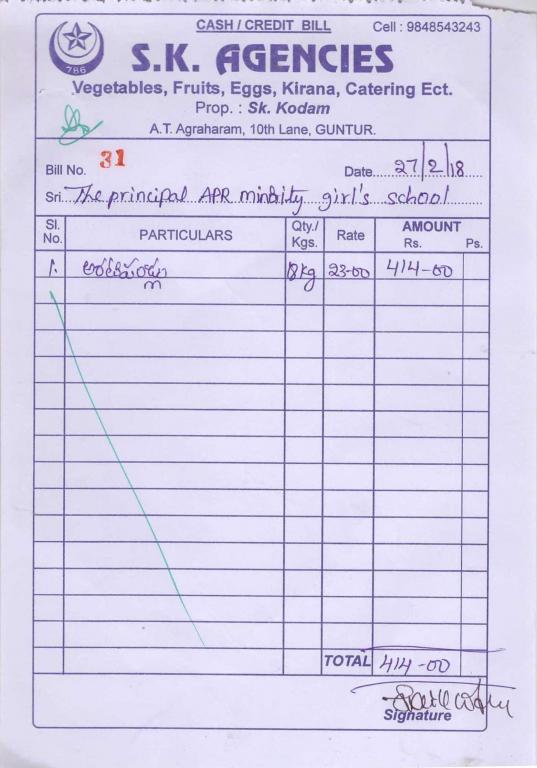 CASH / CREDIT BILL Cell : 9848543243
786
S.K. AGENCIES
Vegetables, Fruits, Eggs, Kirana, Catering Ect.
Prop. : Sk. Kodam
A.T. Agraharam, 10th Lane, GUNTUR.
Bill No. 31 Date 27/2/18
Sri. The principal APR minority girl's school
Sl. No. PARTICULARS Qty./ Kgs. Rate AMOUNT Rs. Ps.
1. 18kg 23-00 414-00
TOTAL 414-00
Signature